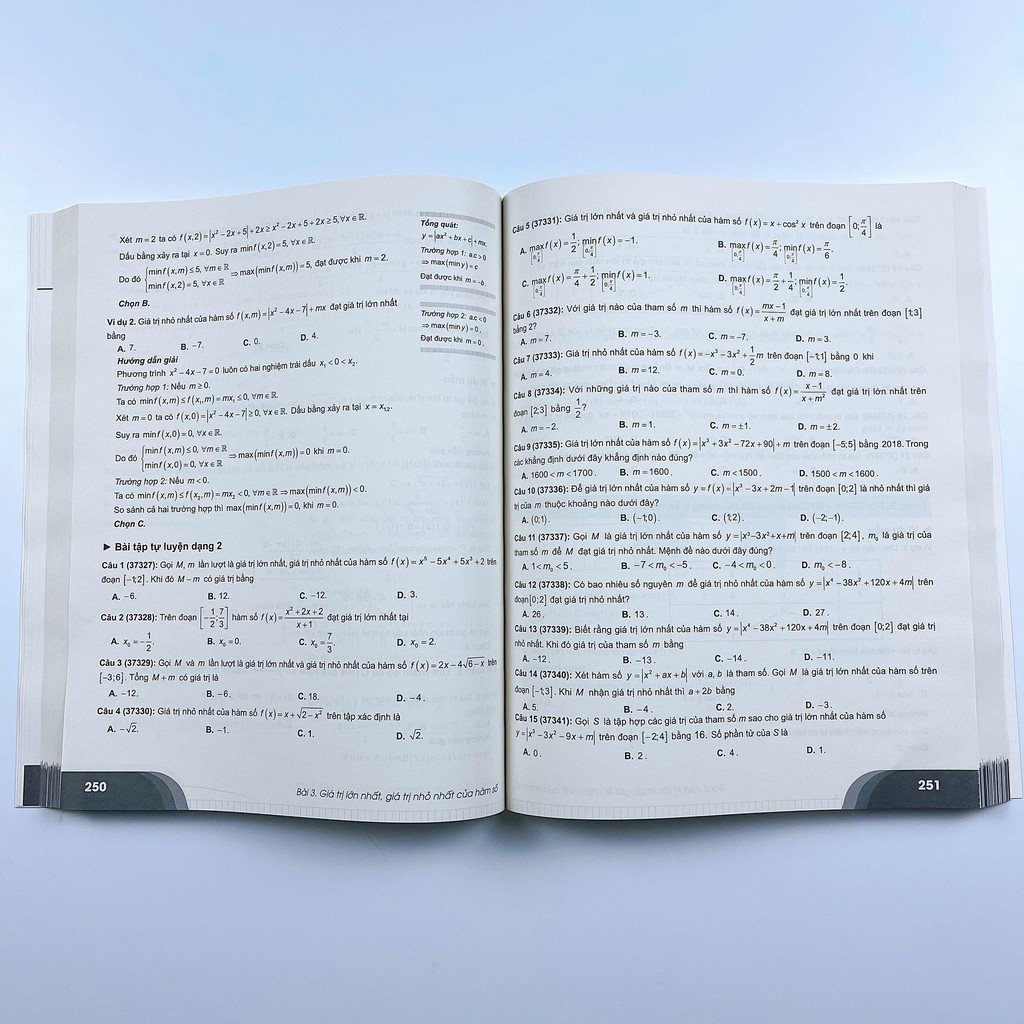 Xét m = 2 ta có f(x,2) = |x² − 2x + 5| + 2x ≥ x² − 2x + 5 + 2x ≥ 5, ∀x ∈ ℝ.
Dấu bằng xảy ra tại x = 0. Suy ra min f(x,2) = 5, ∀x ∈ ℝ.
Do đó { min f(x,m) ≤ 5, ∀m ∈ ℝ
min f(x,2) = 5, ∀x ∈ ℝ ⇒ max(min f(x,m)) = 5, đạt được khi m = 2.
Chọn B.
Ví dụ 2. Giá trị nhỏ nhất của hàm số f(x,m) = |x² − 4x − 7| + mx đạt giá trị lớn nhất
bằng
A. 7. B. −7. C. 0. D. 4.
Hướng dẫn giải
Phương trình x² − 4x − 7 = 0 luôn có hai nghiệm trái dấu x₁ < 0 < x₂.
Trường hợp 1: Nếu m ≥ 0.
Ta có min f(x,m) ≤ f(x₁,m) = mx₁ ≤ 0, ∀m ∈ ℝ.
Xét m = 0 ta có f(x,0) = |x² − 4x − 7| ≥ 0, ∀x ∈ ℝ. Dấu bằng xảy ra tại x = x₁₂.
Suy ra min f(x,0) = 0, ∀x ∈ ℝ.
Do đó { min f(x,m) ≤ 0, ∀m ∈ ℝ
min f(x,0) = 0, ∀x ∈ ℝ ⇒ max(min f(x,m)) = 0 khi m = 0.
Trường hợp 2: Nếu m < 0.
Ta có min f(x,m) ≤ f(x₂,m) = mx₂ < 0, ∀m ∈ ℝ ⇒ max(min f(x,m)) < 0.
So sánh cả hai trường hợp thì max(min f(x,m)) = 0, khi m = 0.
Chọn C.
Tổng quát:
y = |ax² + bx + c| + mx.
Trường hợp 1: a.c > 0
⇒ max(min y) = c
Đạt được khi m = −b.
Trường hợp 2: a.c < 0
⇒ max(min y) = 0.
Đạt được khi m = 0.
► Bài tập tự luyện dạng 2
Câu 1 (37327): Gọi M, m lần lượt là giá trị lớn nhất, giá trị nhỏ nhất của hàm số f(x) = x⁵ − 5x⁴ + 5x³ + 2 trên
đoạn [−1;2]. Khi đó M − m có giá trị bằng
A. −6. B. 12. C. −12. D. 3.
Câu 2 (37328): Trên đoạn [−1/2; 7/3] hàm số f(x) = (x² + 2x + 2)/(x + 1) đạt giá trị lớn nhất tại
A. x₀ = −1/2. B. x₀ = 0. C. x₀ = 7/3. D. x₀ = 2.
Câu 3 (37329): Gọi M và m lần lượt là giá trị lớn nhất và giá trị nhỏ nhất của hàm số f(x) = 2x − 4√(6 − x) trên
[−3;6]. Tổng M + m có giá trị là
A. −12. B. −6. C. 18. D. −4.
Câu 4 (37330): Giá trị nhỏ nhất của hàm số f(x) = x + √(2 − x²) trên tập xác định là
A. −√2. B. −1. C. 1. D. √2.
250
Bài 3. Giá trị lớn nhất, giá trị nhỏ nhất của hàm số
Câu 5 (37331): Giá trị lớn nhất và giá trị nhỏ nhất của hàm số f(x) = x + cos² x trên đoạn [0; π/4] là
A. max[0;π/4] f(x) = 1/2; min[0;π/4] f(x) = −1. B. max[0;π/4] f(x) = π/4; min[0;π/4] f(x) = π/6.
C. max[0;π/4] f(x) = π/4 + 1/2; min[0;π/4] f(x) = 1. D. max[0;π/4] f(x) = π/2 + 1/4; min[0;π/4] f(x) = 1/2.
Câu 6 (37332): Với giá trị nào của tham số m thì hàm số f(x) = (mx − 1)/(x + m) đạt giá trị lớn nhất trên đoạn [1;3]
bằng 2?
A. m = 7. B. m = −3. C. m = −7. D. m = 3.
Câu 7 (37333): Giá trị nhỏ nhất của hàm số f(x) = −x³ − 3x² + 1/2 m trên đoạn [−1;1] bằng 0 khi
A. m = 4. B. m = 12. C. m = 0. D. m = 8.
Câu 8 (37334): Với những giá trị nào của tham số m thì hàm số f(x) = (x − 1)/(x + m²) đạt giá trị lớn nhất trên
đoạn [2;3] bằng 1/2?
A. m = −2. B. m = 1. C. m = ±1. D. m = ±2.
Câu 9 (37335): Giá trị lớn nhất của hàm số f(x) = |x³ + 3x² − 72x + 90| + m trên đoạn [−5;5] bằng 2018. Trong
các khẳng định dưới đây khẳng định nào đúng?
A. 1600 < m < 1700. B. m = 1600. C. m < 1500. D. 1500 < m < 1600.
Câu 10 (37336): Để giá trị lớn nhất của hàm số y = f(x) = |x³ − 3x + 2m − 1| trên đoạn [0;2] là nhỏ nhất thì giá
trị của m thuộc khoảng nào dưới đây?
A. (0;1). B. (−1;0). C. (1;2). D. (−2;−1).
Câu 11 (37337): Gọi M là giá trị lớn nhất của hàm số y = |x³−3x²+x+m| trên đoạn [2;4], m₀ là giá trị của
tham số m để M đạt giá trị nhỏ nhất. Mệnh đề nào dưới đây đúng?
A. 1 < m₀ < 5. B. −7 < m₀ < −5. C. −4 < m₀ < 0. D. m₀ < −8.
Câu 12 (37338): Có bao nhiêu số nguyên m để giá trị nhỏ nhất của hàm số y = |x⁴ − 38x² + 120x + 4m| trên
đoạn [0;2] đạt giá trị nhỏ nhất?
A. 26. B. 13. C. 14. D. 27.
Câu 13 (37339): Biết rằng giá trị lớn nhất của hàm số y = |x⁴ − 38x² + 120x + 4m| trên đoạn [0;2] đạt giá trị
nhỏ nhất. Khi đó giá trị của tham số m bằng
A. −12. B. −13. C. −14. D. −11.
Câu 14 (37340): Xét hàm số y = |x² + ax + b| với a, b là tham số. Gọi M là giá trị lớn nhất của hàm số trên
đoạn [−1;3]. Khi M nhận giá trị nhỏ nhất thì a + 2b bằng
A. 5. B. −4. C. 2. D. −3.
Câu 15 (37341): Gọi S là tập hợp các giá trị của tham số m sao cho giá trị lớn nhất của hàm số
y = |x³ − 3x² − 9x + m| trên đoạn [−2;4] bằng 16. Số phần tử của S là
A. 0. B. 2. C. 4. D. 1.
251